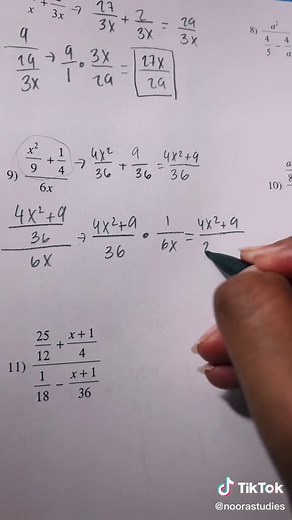 x + 3x → 27/3x + 2/3x = 29/3x
9/(29/3x) → 9/1 • 3x/29 = 27x/29
8) a² / (4/5 - 4/
9) (x²/9 + 1/4) / 6x → 4x²/36 + 9/36 = 4x²+9/36
10)
((4x²+9)/36) / 6x → 4x²+9/36 • 1/6x = 4x²+9/2
11) (25/12 + (x+1)/4) / (1/18 - (x+1)/36)
TikTok
@noorastudies